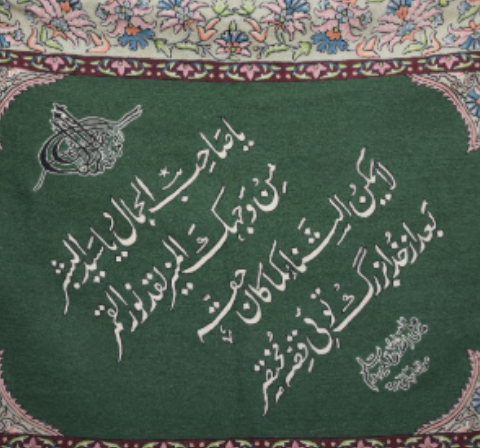 يا صاحب الجمال يا سيد البشر
من وجهك المنير لقد نور القمر
لا يمكن الثناء كما كان حقه
بعد از خدا بزرگ توئی قصه مختصر